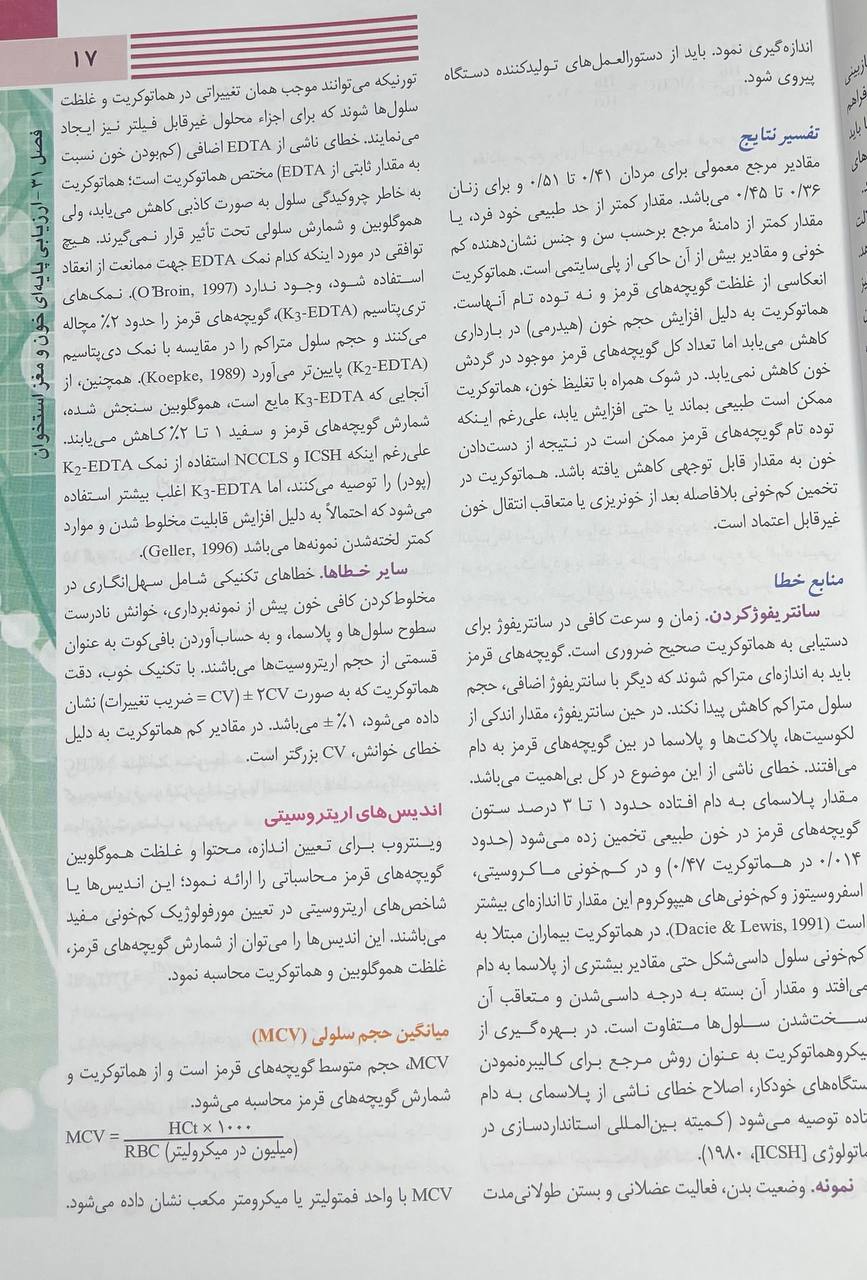 ۱۷
فصل ۳۱ - ارزیابی پایه‌ای خون و مغز استخوان
اندازه‌گیری نمود. باید از دستورالعمل‌های تولیدکننده دستگاه
پیروی شود.
تفسیر نتایج
مقادیر مرجع معمولی برای مردان ۰/۴۱ تا ۰/۵۱ و برای زنان
۰/۳۶ تا ۰/۴۵ می‌باشد. مقدار کمتر از حد طبیعی خود فرد، یا
مقدار کمتر از دامنهٔ مرجع برحسب سن و جنس نشان‌دهنده کم
خونی و مقادیر بیش از آن حاکی از پلی‌سایتمی است. هماتوکریت
انعکاسی از غلظت گویچه‌های قرمز و نه توده تام آنهاست.
هماتوکریت به دلیل افزایش حجم خون (هیدرمی) در بارداری
کاهش می‌یابد اما تعداد کل گویچه‌های قرمز موجود در گردش
خون کاهش نمی‌یابد. در شوک همراه با تغلیظ خون، هماتوکریت
ممکن است طبیعی بماند یا حتی افزایش یابد، علی‌رغم اینکه
توده تام گویچه‌های قرمز ممکن است در نتیجه از دست‌دادن
خون به مقدار قابل توجهی کاهش یافته باشد. هماتوکریت در
تخمین کم‌خونی بلافاصله بعد از خونریزی یا متعاقب انتقال خون
غیرقابل اعتماد است.
منابع خطا
سانتریفوژکردن. زمان و سرعت کافی در سانتریفوژ برای
دستیابی به هماتوکریت صحیح ضروری است. گویچه‌های قرمز
باید به اندازه‌ای متراکم شوند که دیگر با سانتریفوژ اضافی، حجم
سلول متراکم کاهش پیدا نکند. در حین سانتریفوژ، مقدار اندکی از
لکوسیت‌ها، پلاکت‌ها و پلاسما در بین گویچه‌های قرمز به دام
می‌افتند. خطای ناشی از این موضوع در کل بی‌اهمیت می‌باشد.
مقدار پلاسمای به دام افتاده حدود ۱ تا ۳ درصد ستون
گویچه‌های قرمز در خون طبیعی تخمین زده می‌شود (حدود
۰/۰۱۴ در هماتوکریت ۰/۴۷) و در کم‌خونی ماکروسیتی،
اسفروسیتوز و کم‌خونی‌های هیپوکروم این مقدار تا اندازه‌ای بیشتر
است (Dacie & Lewis, 1991). در هماتوکریت بیماران مبتلا به
کم‌خونی سلول داسی‌شکل حتی مقادیر بیشتری از پلاسما به دام
می‌افتد و مقدار آن بسته به درجه داسی‌شدن و متعاقب آن
سخت‌شدن سلول‌ها متفاوت است. در بهره‌گیری از
یکروهماتوکریت به عنوان روش مرجع برای کالیبره‌نمودن
ستگاه‌های خودکار، اصلاح خطای ناشی از پلاسمای به دام
تاده توصیه می‌شود (کمیته بین‌المللی استانداردسازی در
ماتولوژی [ICSH]، ۱۹۸۰).
نمونه. وضعیت بدن، فعالیت عضلانی و بستن طولانی‌مدت
تورنیکه می‌توانند موجب همان تغییراتی در هماتوکریت و غلظت
سلول‌ها شوند که برای اجزاء محلول غیرقابل فیلتر نیز ایجاد
می‌نمایند. خطای ناشی از EDTA اضافی (کم‌بودن خون نسبت
به مقدار ثابتی از EDTA) مختص هماتوکریت است؛ هماتوکریت
به خاطر چروکیدگی سلول به صورت کاذبی کاهش می‌یابد، ولی
هموگلوبین و شمارش سلولی تحت تأثیر قرار نمی‌گیرند. هیچ
توافقی در مورد اینکه کدام نمک EDTA جهت ممانعت از انعقاد
استفاده شود، وجود ندارد (O'Broin, 1997). نمک‌های
تری‌پتاسیم (K3-EDTA)، گویچه‌های قرمز را حدود ۲٪ مچاله
می‌کنند و حجم سلول متراکم را در مقایسه با نمک دی‌پتاسیم
(K2-EDTA) پایین‌تر می‌آورد (Koepke, 1989). همچنین، از
آنجایی که K3-EDTA مایع است، هموگلوبین سنجش شده،
شمارش گویچه‌های قرمز و سفید ۱ تا ۲٪ کاهش می‌یابند.
علی‌رغم اینکه ICSH و NCCLS استفاده از نمک K2-EDTA
(پودر) را توصیه می‌کنند، اما K3-EDTA اغلب بیشتر استفاده
می‌شود که احتمالاً به دلیل افزایش قابلیت مخلوط شدن و موارد
کمتر لخته‌شدن نمونه‌ها می‌باشد (Geller, 1996).
سایر خطاها. خطاهای تکنیکی شامل سهل‌انگاری در
مخلوط‌کردن کافی خون پیش از نمونه‌برداری، خوانش نادرست
سطوح سلول‌ها و پلاسما، و به حساب‌آوردن بافی‌کوت به عنوان
قسمتی از حجم اریتروسیت‌ها می‌باشند. با تکنیک خوب، دقت
هماتوکریت که به صورت ۲CV ± (CV = ضریب تغییرات) نشان
داده می‌شود، ۱٪ ± می‌باشد. در مقادیر کم هماتوکریت به دلیل
خطای خوانش، CV بزرگتر است.
اندیس‌های اریتروسیتی
وینتروب برای تعیین اندازه، محتوا و غلظت هموگلوبین
گویچه‌های قرمز محاسباتی را ارائه نمود؛ این اندیس‌ها یا
شاخص‌های اریتروسیتی در تعیین مورفولوژیک کم‌خونی مفید
می‌باشند. این اندیس‌ها را می‌توان از شمارش گویچه‌های قرمز،
غلظت هموگلوبین و هماتوکریت محاسبه نمود.
میانگین حجم سلولی (MCV)
MCV، حجم متوسط گویچه‌های قرمز است و از هماتوکریت و
شمارش گویچه‌های قرمز محاسبه می‌شود.
MCV = HCt × ۱۰۰۰
RBC (میلیون در میکرولیتر)
MCV با واحد فمتولیتر یا میکرومتر مکعب نشان داده می‌شود.